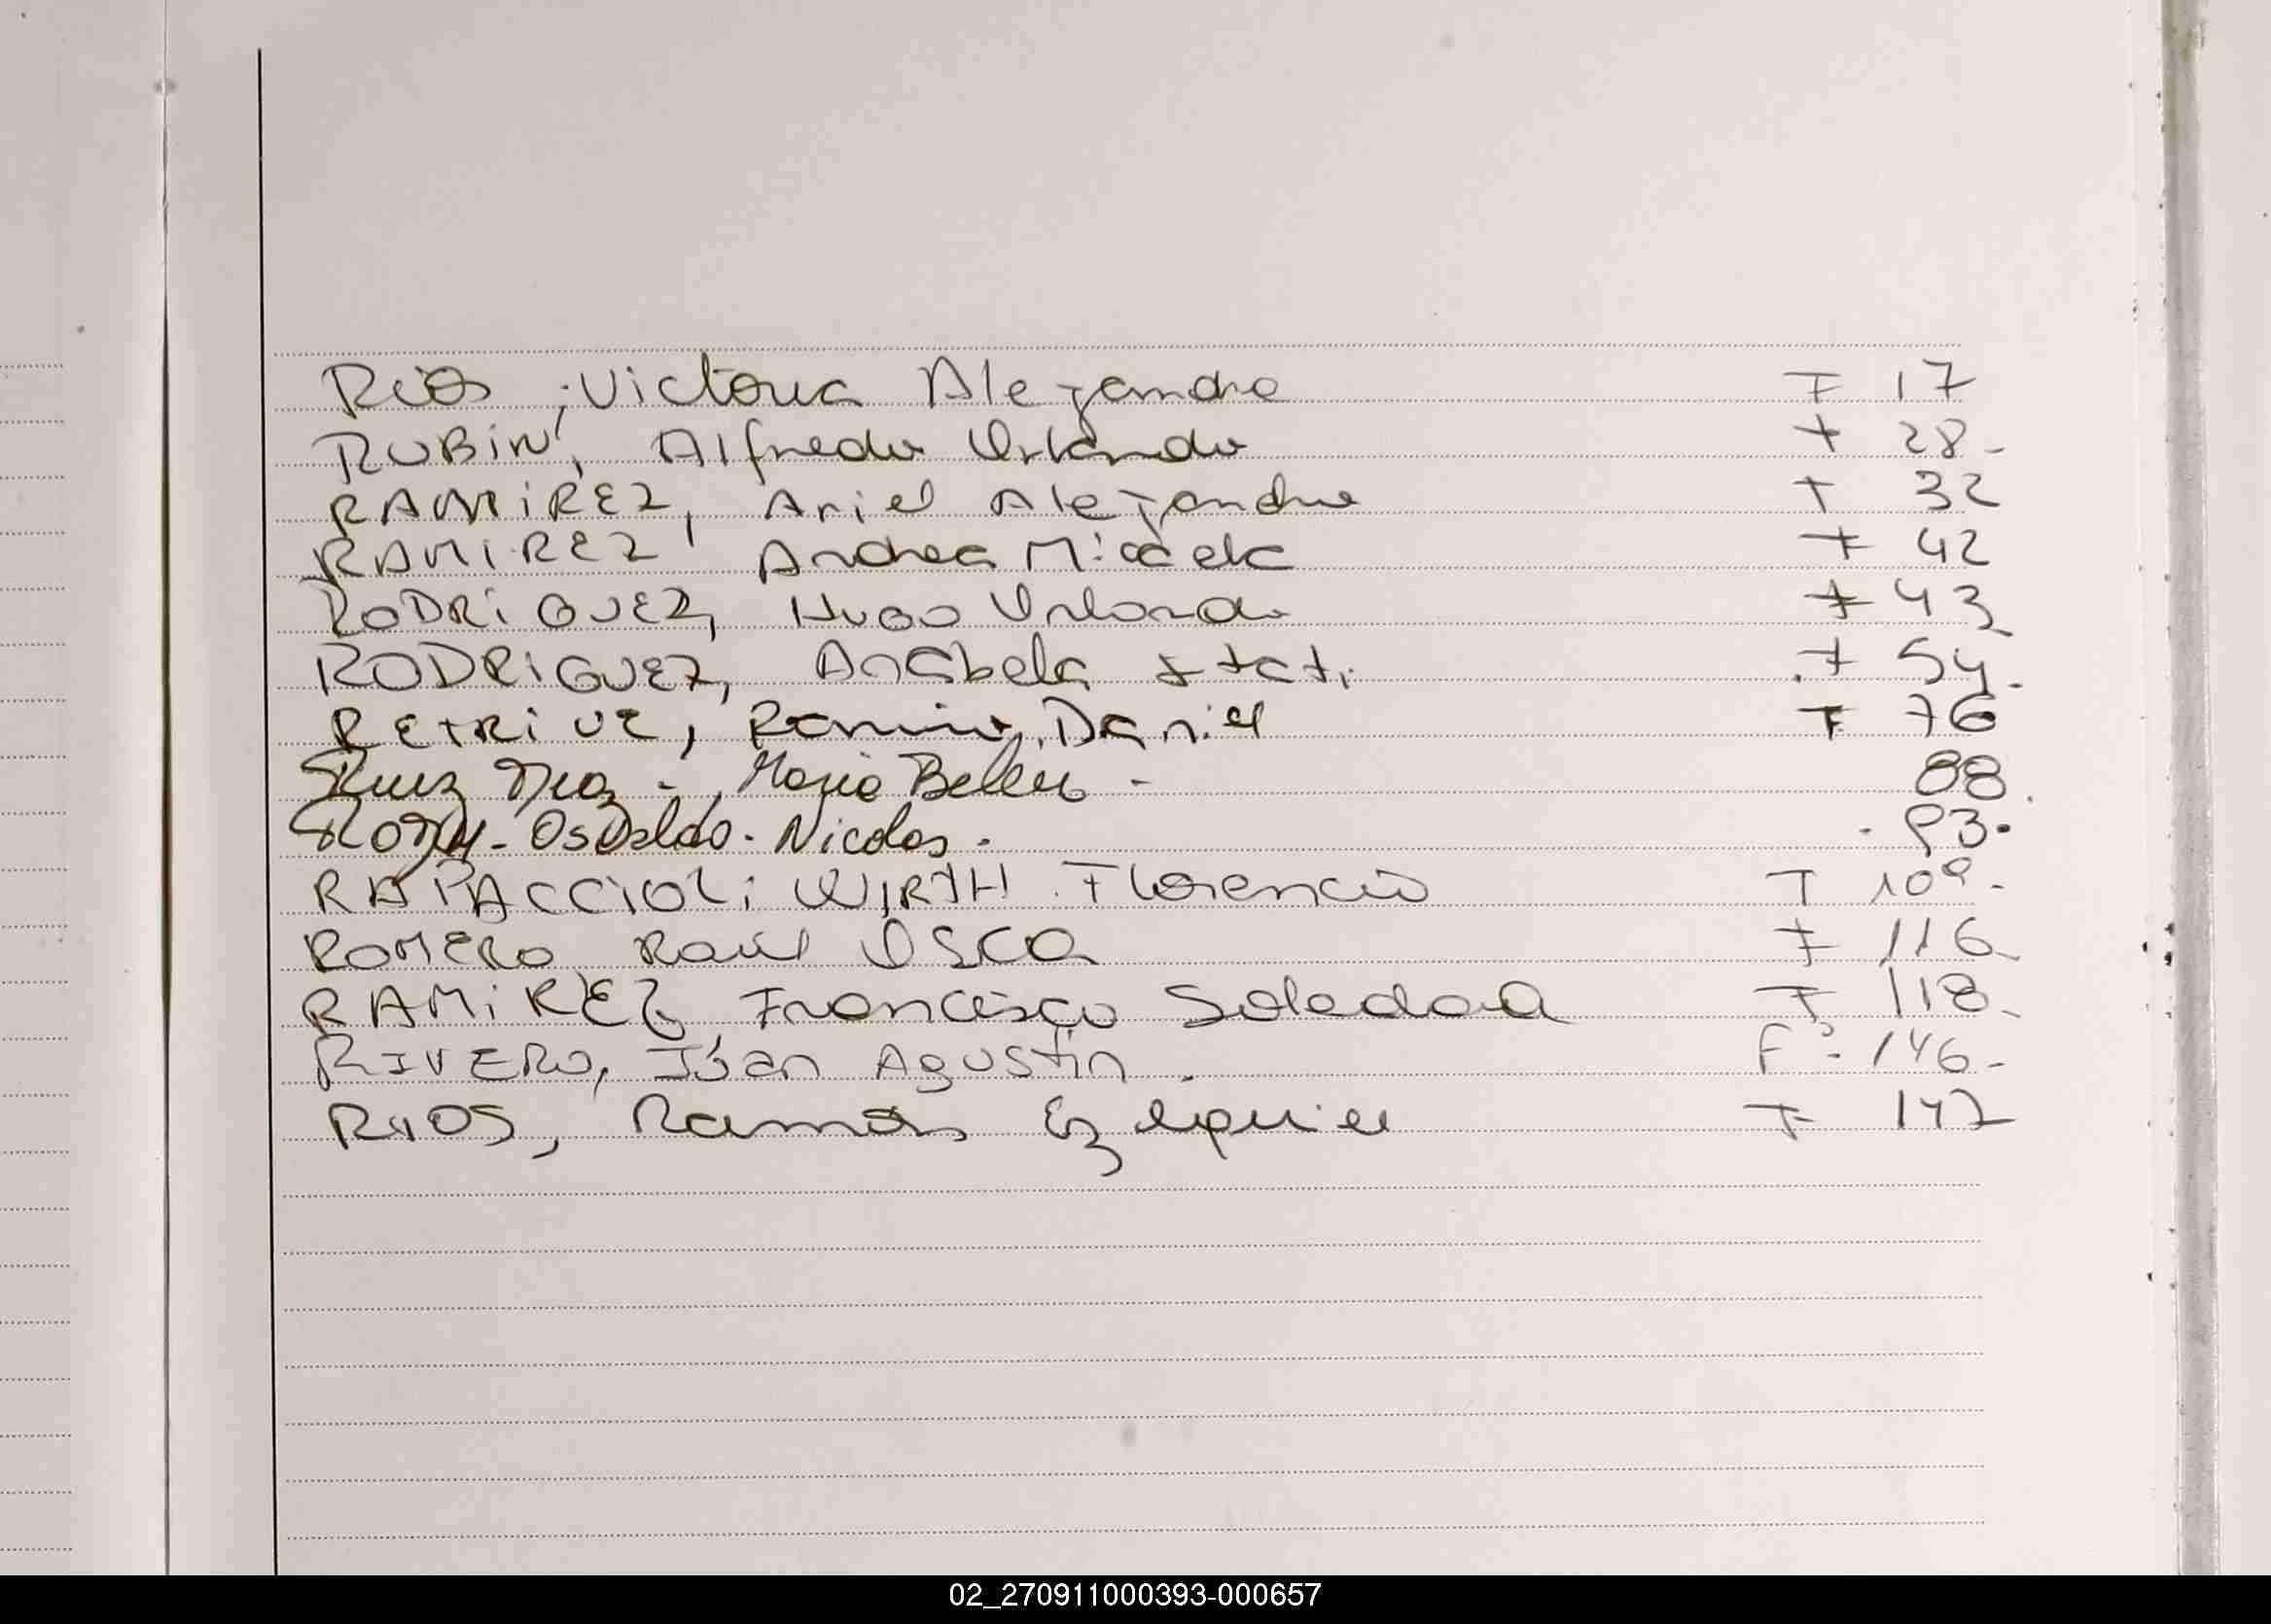 Rios, Victoria Alejandra F 17
RUBIN, Alfredo Orlando F 28-
RAMIREZ, Ariel Alejandro F 32
RAMIREZ Andrea Micaela F 42
RODRIGUEZ, Hugo Orlando F 43
RODRIGUEZ, Anabela F 54.
RETRIVE, Ramiro Daniel F 76
Ruiz Diaz - Maria Belen - 88.
Osvaldo - Nicolas -
RAPACCIOLI WIRTH Florencia F 109-
ROMERO Raul Osca F 116-
RAMIREZ, Francisco Soledad F 118-
RIVERO, Iván Agustin. Fº- 146-
RIOS, Ramón Ezequiel F 147
02_270911000393-000657